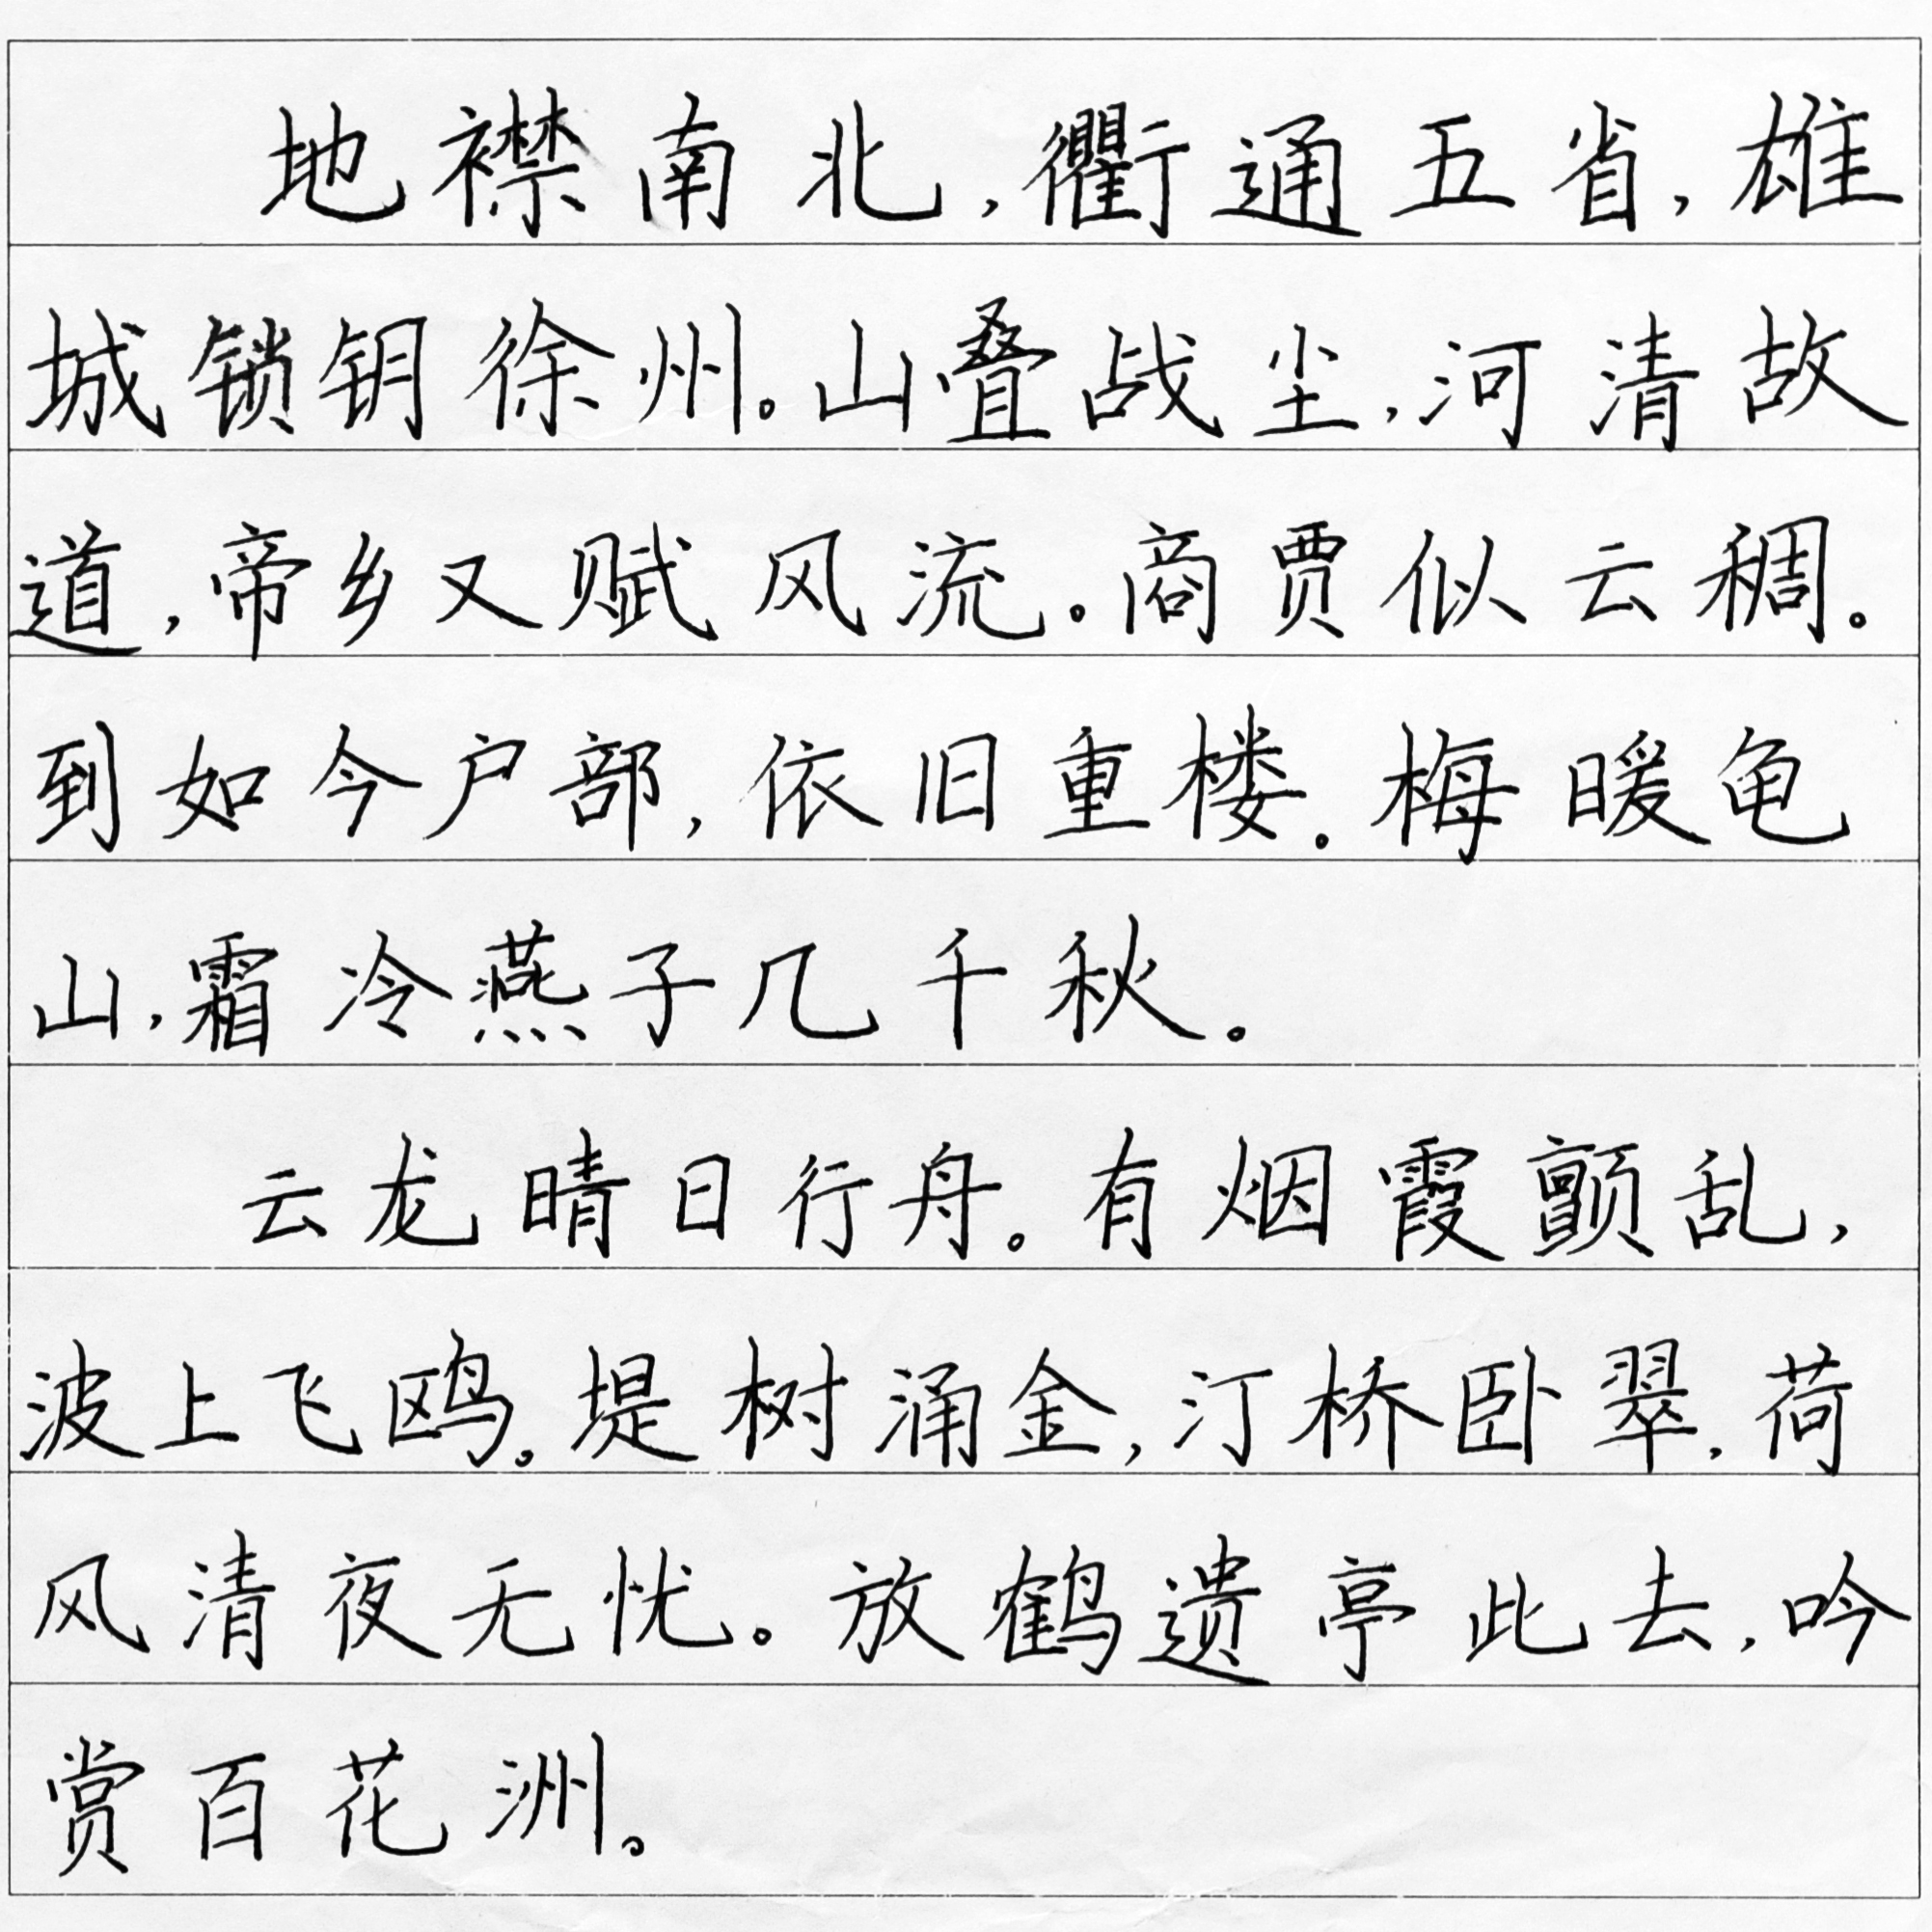 地襟南北，衢通五省，雄
城锁钥徐州。山叠战尘，河清故
道，帝乡又赋风流。商贾似云稠。
到如今户部，依旧重楼。梅暖龟
山，霜冷燕子几千秋。
云龙晴日行舟。有烟霞颤乱，
波上飞鸥。堤树涌金，汀桥卧翠，荷
风清夜无忧。放鹤遗亭此去，吟
赏百花洲。